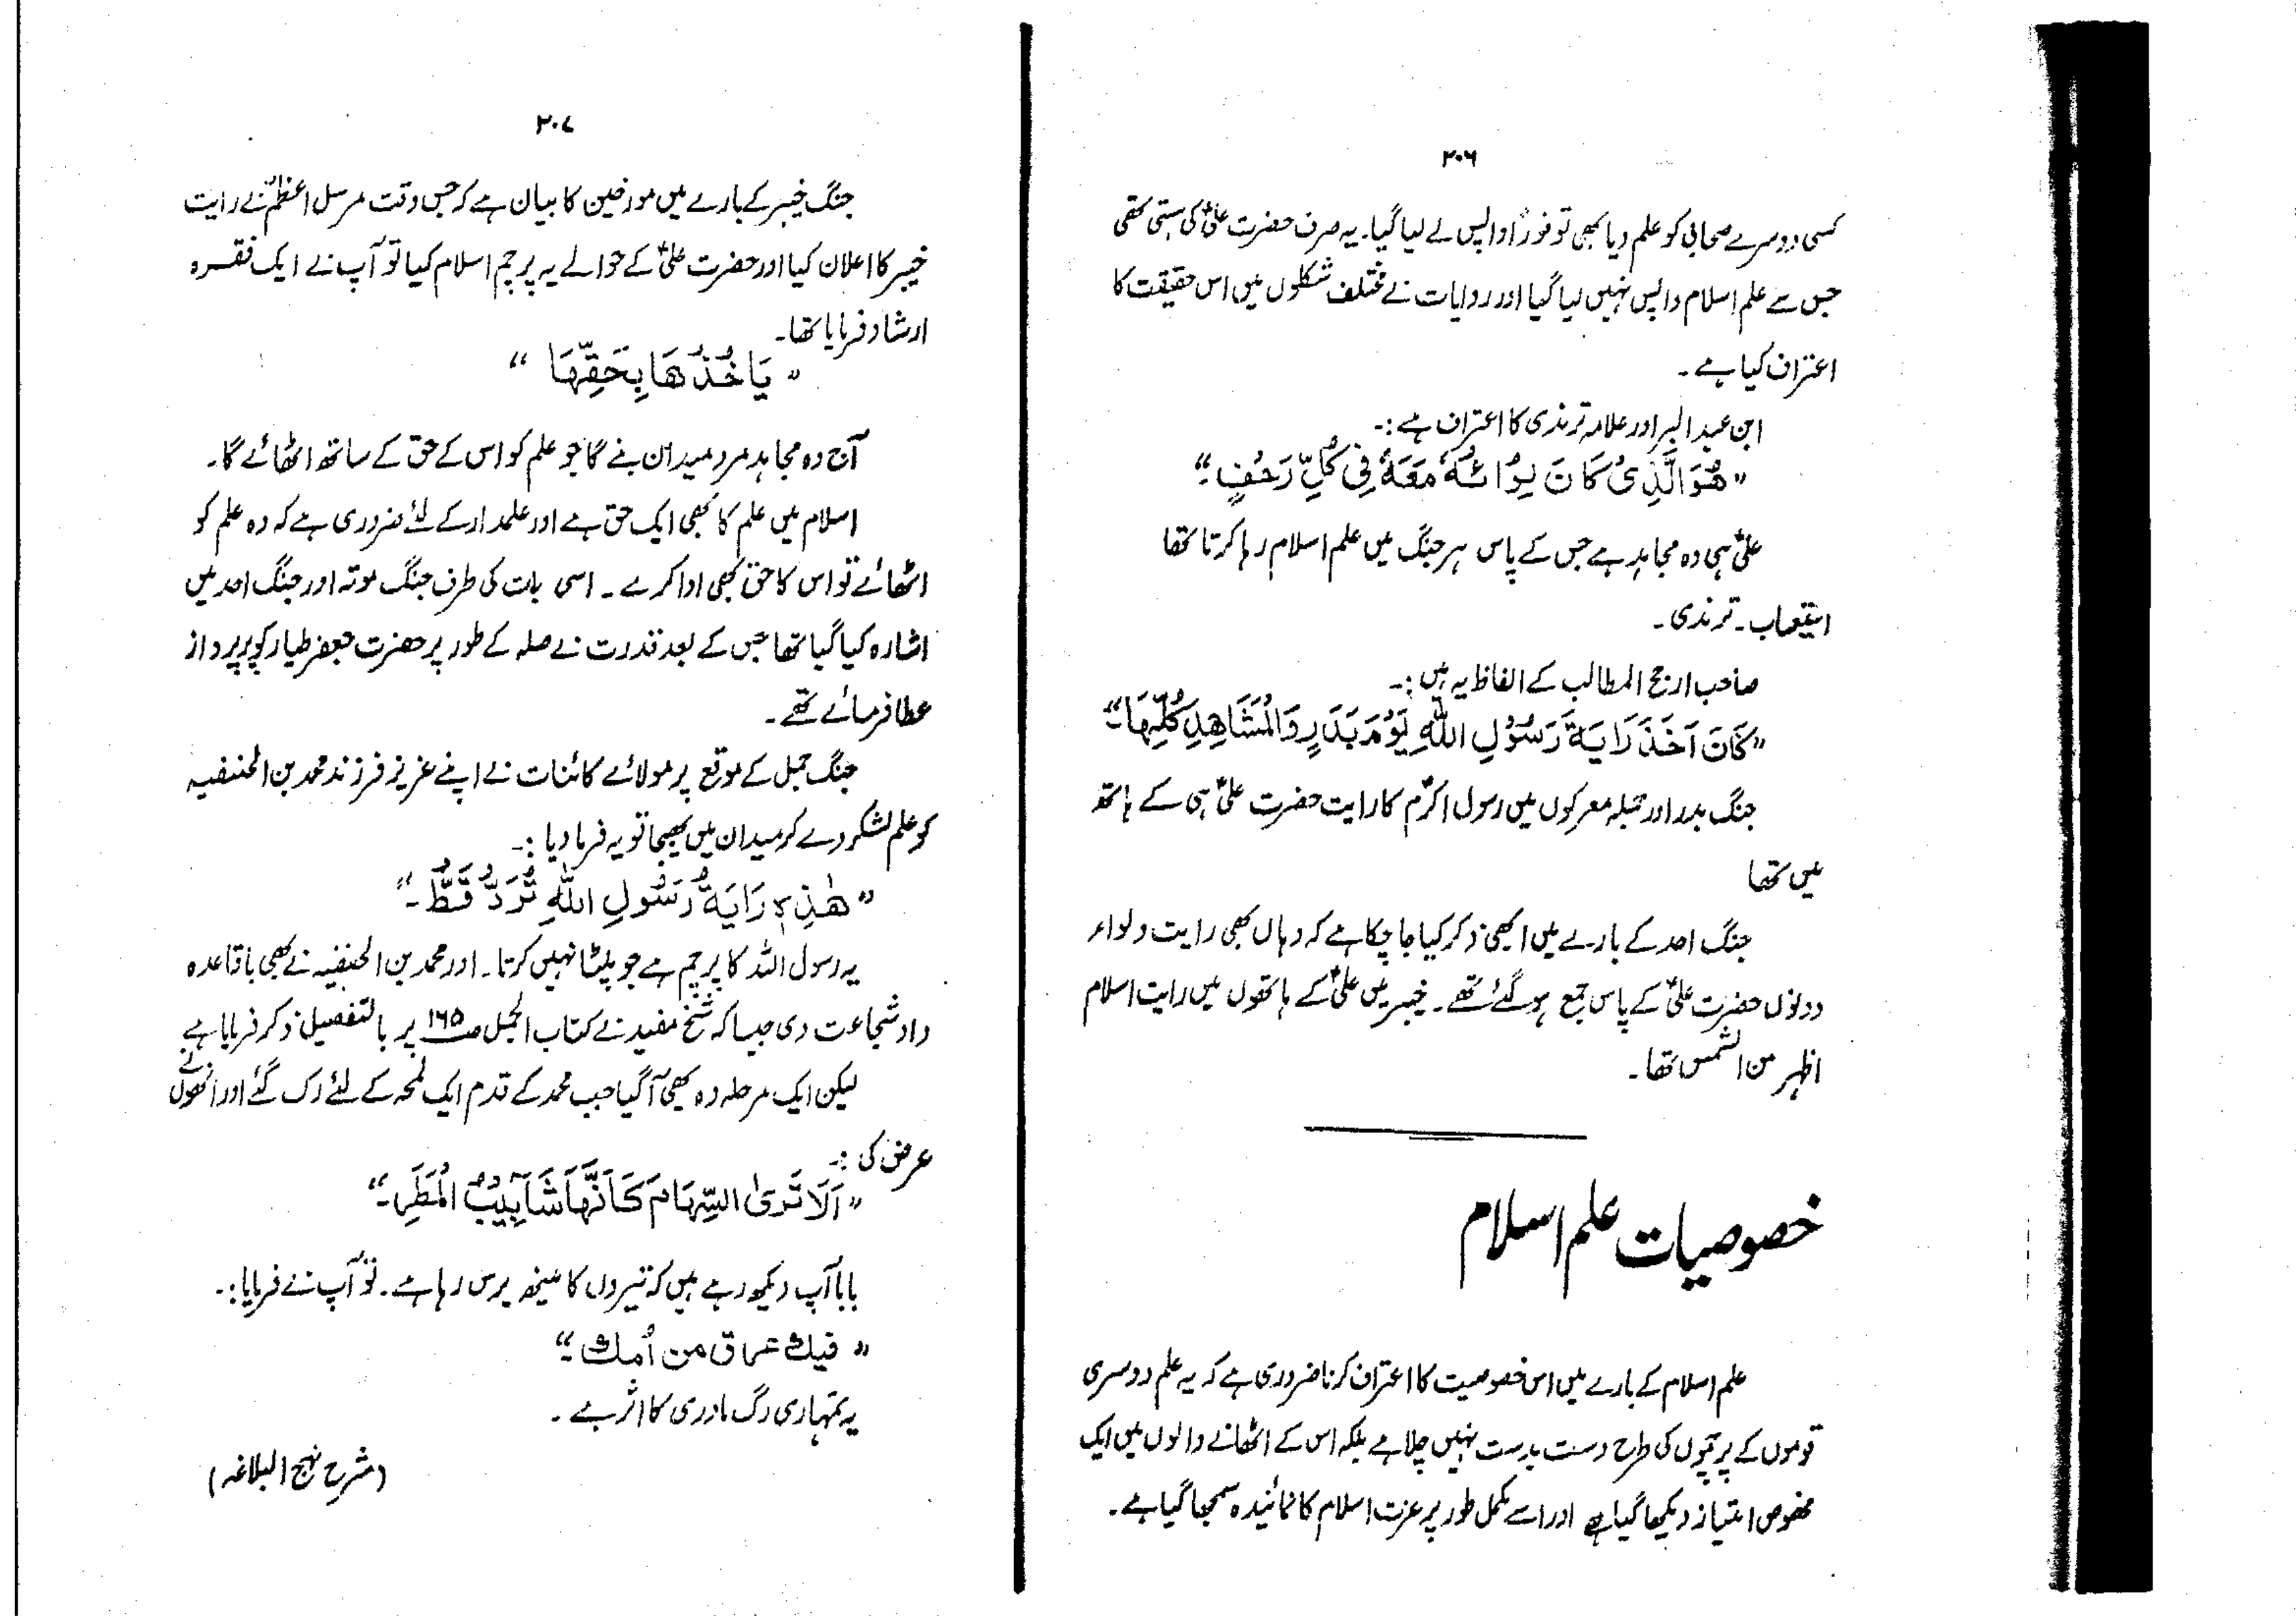 ۲۰۶
کسی دوسرے صحابی کو علم دیا بھی تو فوراً واپس لے لیا گیا۔ یہ صرف حضرت علیؑ کی ہستی تھی
جس سے علم اسلام واپس نہیں لیا گیا اور روایات نے مختلف شکلوں میں اس حقیقت کا
اعتراف کیا ہے۔
ابن عبدالبر اور علامہ ترمذی کا اعتراف ہے :۔
"هُوَ الَّذِیْ كَانَ لِوَائُهٗ مَعَهٗ فِی كُلِّ زَحْفٍ۔"
علیؑ ہی وہ مجاہد ہے جس کے پاس ہر جنگ میں علم اسلام رہا کرتا تھا
استیعاب۔ ترمذی۔
صاحب ارجح المطالب کے الفاظ یہ ہیں :۔
"كَانَ اَخَذَ رَايَةَ رَسُوْلِ اللهِ يَوْمَ بَدَرٍ وَالْمَشَاهِدِ كُلِّهَا۔"
جنگ بدر اور جملہ معرکوں میں رسول اکرمؐ کا رایت حضرت علیؑ ہی کے ہاتھ
میں تھا
جنگ احد کے بارے میں ابھی ذکر کیا جا چکا ہے کہ وہاں بھی رایت و لواء
دونوں حضرت علیؑ کے پاس جمع ہو گئے تھے۔ خیبر میں علیؑ کے ہاتھوں میں رایت اسلام
اظہر من الشمس تھا۔
خصوصیات علم اسلام
علم اسلام کے بارے میں اس خصوصیت کا اعتراف کرنا ضروری ہے کہ یہ علم دوسری
قوموں کے پرچموں کی طرح دست بدست نہیں چلا ہے بلکہ اس کے اٹھانے والوں میں ایک
مخصوص امتیاز دیکھا گیا ہے اور اسے مکمل طور پر عزت اسلام کا نمائندہ سمجھا گیا ہے۔
۲۰۷
جنگ خیبر کے بارے میں مورخین کا بیان ہے کہ جس وقت مرسل اعظمؐ نے رایت
خیبر کا اعلان کیا اور حضرت علیؑ کے حوالے یہ پرچم اسلام کیا تو آپ نے ایک فقرہ
ارشاد فرمایا تھا۔
"يَاخُذُهَا بِحَقِّهَا"
آج وہ مجاہد مرد میدان بنے گا جو علم کو اس کے حق کے ساتھ اٹھائے گا۔
اسلام میں علم کا بھی ایک حق ہے اور علمدار کے لئے ضروری ہے کہ وہ علم کو
اٹھائے تو اس کا حق بھی ادا کرے۔ اسی بات کی طرف جنگ موتہ اور جنگ احد میں
اشارہ کیا گیا تھا جس کے بعد قدرت نے صلہ کے طور پر حضرت جعفر طیار کو پر پرواز
عطا فرمائے تھے۔
جنگ جمل کے موقع پر مولائے کائنات نے اپنے عزیز فرزند محمد بن الحنفیہ
کو علم لشکر دے کر میدان میں بھیجا تو یہ فرما دیا :۔
"هٰذِهٖ رَايَةُ رَسُولِ اللهِ تُرَدُّ قَطُّ۔"
یہ رسول اللہ کا پرچم ہے جو پلٹا نہیں کرتا۔ اور محمد بن الحنفیہ نے بھی باقاعدہ
داد شجاعت دی جیسا کہ شیخ مفید نے کتاب الجمل صـ۱۶۵ پر بالتفصیل ذکر فرمایا ہے
لیکن ایک مرحلہ وہ بھی آ گیا جب محمد کے قدم ایک لمحہ کے لئے رک گئے اور انھوں نے
عرض کی :۔
"اَلَا تَرىٰ السِّهَامَ كَاَنَّهَا شَآبِيْبُ الْمَطَرِ۔"
بابا آپ دیکھ رہے ہیں کہ تیروں کا مینھ برس رہا ہے۔ تو آپ نے فرمایا :۔
"فيك عراق من اُمك۔"
یہ تمہاری رگ مادری کا اثر ہے۔
(شرح نہج البلاغہ)